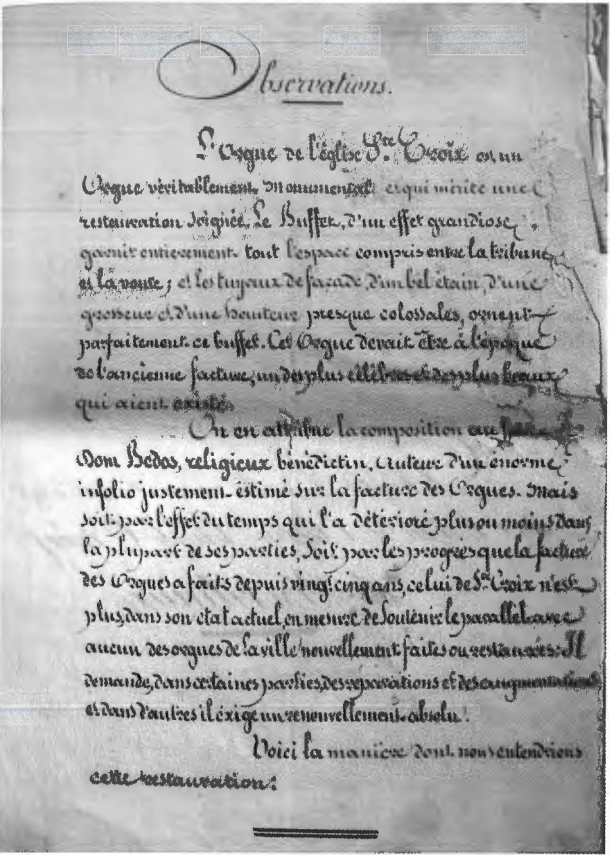 Observations.
L'Orgue de l'église Ste Croix est un
Orgue véritablement monumental et qui mérite une
restauration soignée. Le Buffet, d'un effet grandiose,
garnit entièrement tout l'espace compris entre la tribune
et la voute; et les tuyaux de façade, d'un bel étain, d'une
grosseur et d'une hauteur presque colossales, ornent
parfaitement ce buffet. Cet Orgue devait être à l'époque
de l'ancienne facture, un des plus célèbres et des plus beaux
qui aient existé.
On en attribue la composition au
Dom Bedos, religieux bénédictin, Auteur d'un énorme
infolio justement estimé sur la facture des Orgues. Mais
soit par l'effet du temps qui l'a détérioré plus ou moins dans
la plupart de ses parties, soit par les progrès que la facture
des Orgues a faits depuis vingt cinq ans, celui de Ste Croix n'est
plus, dans son état actuel, en mesure de soutenir le parallèle avec
aucun des orgues de la ville nouvellement faites ou restaurées. Il
demande, dans certaines parties, des réparations et des augmentations
et dans d'autres il éxige un renouvellement absolu.
Voici la manière dont nous entendrions
cette restauration: